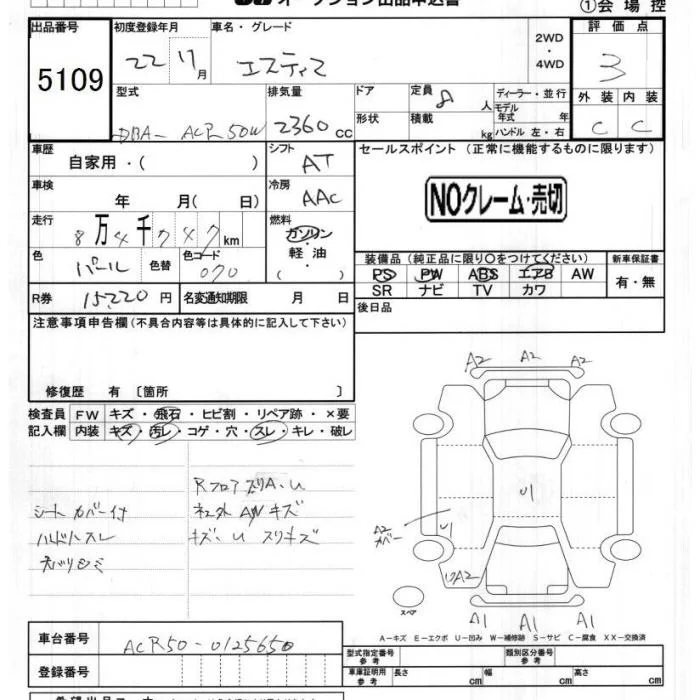 オークション出品申込書
①会場控
出品番号 5109
初度登録年月 22 年 11月
車名・グレード エスティマ
2WD・4WD
評価点 3
外装 C 内装 C
型式 DBA- ACR50W
排気量 2360cc
ドア
形状
定員 8人
積載 kg
ディーラー・並行
モデル年式 年
ハンドル 左・右
車歴 自家用・( )
シフト AT
車検 年 月( 日)
冷房 AAC
走行 8万4千747km
燃料 ガソリン 軽油 ( )
色 パール 色替
色コード 070
R券 15220円
名変通知期限 月 日
セールスポイント (正常に機能するものに限ります)
NOクレーム・売切
装備品 (純正品に限り○をつけてください)
新車保証書
PS PW ABS エアB AW
有・無
SR ナビ TV カワ
後日品
注意事項申告欄(不具合内容等は具体的に記入して下さい)
修復歴 有 [箇所 ]
検査員記入欄
FW キズ・飛石・ヒビ割・リペア跡・×要
内装 キズ・汚レ・コゲ・穴・スレ・キレ・破レ
シートカバー付
ハンドルスレ
R フロア ズリA・U
キズ・U スリキズ
A2 A2 A2
U1
A2 カバー
U1
UA2
スペア
A1 A1 A1
A-キズ E-エクボ U-凹み W-補修跡 S-サビ C-腐食 XX-交換済
車台番号 ACR50-0125650
登録番号
型式指定番号 参考
類別区分番号 参考
車庫証明用 参考 長さ cm 幅 cm 高さ cm